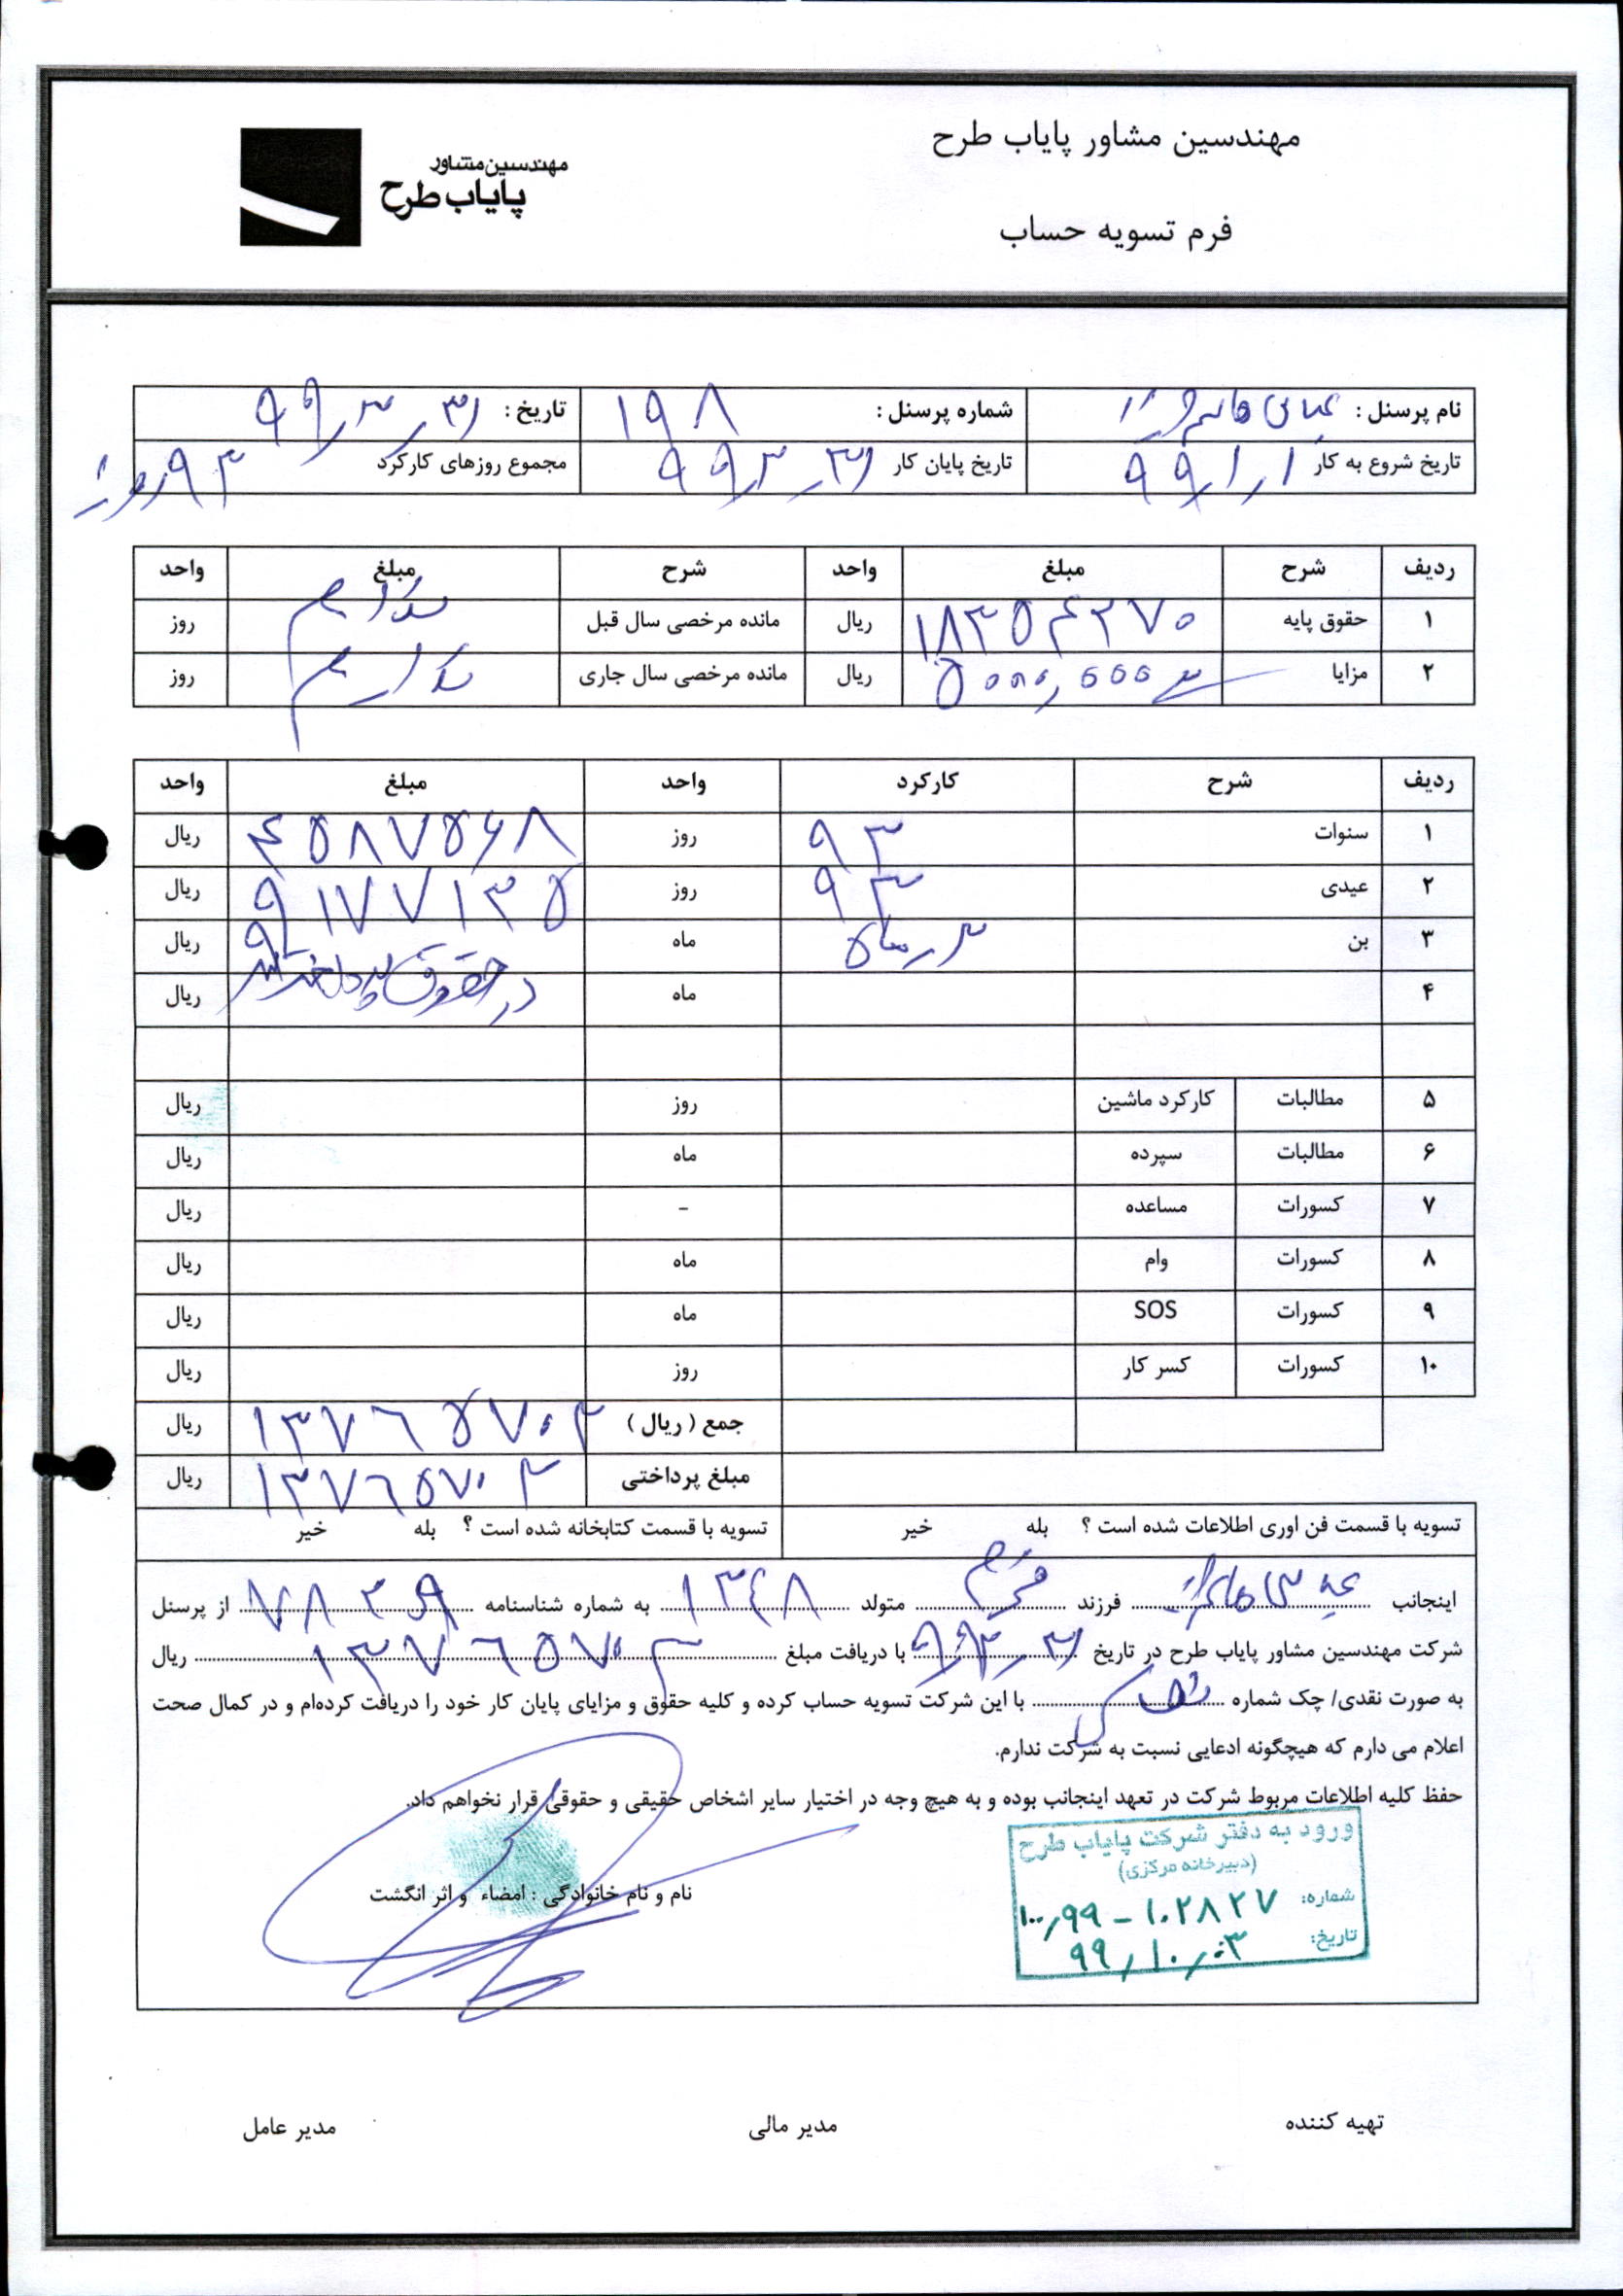 مهندسین مشاور پایاب طرح
مهندسین مشاور
پایاب طرح
فرم تسویه حساب
نام پرسنل : عباس شماره پرسنل : ۱۹۸ تاریخ : ۹۹/۳/۳۱
تاریخ شروع به کار ۹۹/۱/۱ تاریخ پایان کار ۹۹/۳/۳۱ مجموع روزهای کارکرد ۹۳ روز
ردیف شرح مبلغ واحد شرح مبلغ واحد
۱ حقوق پایه ۱۸۳۵۴۲۷۰ ریال مانده مرخصی سال قبل ندارم روز
۲ مزایا ۵۰۰۰,۰۰۰ ریال مانده مرخصی سال جاری ندارم روز
ردیف شرح کارکرد واحد مبلغ واحد
۱ سنوات ۹۳ روز ۴۵۸۷۵۶۸ ریال
۲ عیدی ۹۳ روز ۹۱۷۷۱۳۵ ریال
۳ بن ۳ ماه ماه ریال
۴ ماه در حقوق پرداخت شد ریال
۵ مطالبات کارکرد ماشین روز ریال
۶ مطالبات سپرده ماه ریال
۷ کسورات مساعده - ریال
۸ کسورات وام ماه ریال
۹ کسورات SOS ماه ریال
۱۰ کسورات کسر کار روز ریال
جمع ( ریال ) ۱۳۷۶۵۷۰۳ ریال
مبلغ پرداختی ۱۳۷۶۵۷۰۳ ریال
تسویه با قسمت فن اوری اطلاعات شده است ؟ بله خیر تسویه با قسمت کتابخانه شده است ؟ بله خیر
اینجانب عباس فرزند متولد ۱۳۴۸ به شماره شناسنامه ۷۸۳۹ از پرسنل
شرکت مهندسین مشاور پایاب طرح در تاریخ ۹۹/۳/۳۱ با دریافت مبلغ ۱۳۷۶۵۷۰۳ ریال
به صورت نقدی/ چک شماره با این شرکت تسویه حساب کرده و کلیه حقوق و مزایای پایان کار خود را دریافت کرده‌ام و در کمال صحت
اعلام می دارم که هیچگونه ادعایی نسبت به شرکت ندارم.
حفظ کلیه اطلاعات مربوط شرکت در تعهد اینجانب بوده و به هیچ وجه در اختیار سایر اشخاص حقیقی و حقوقی قرار نخواهم داد.
ورود به دفتر شرکت پایاب طرح
(دبیرخانه مرکزی)
شماره: ۱۰۰/۹۹ - ۱۰۲۸۲۷
تاریخ: ۹۹/۱۰/۰۳
نام و نام خانوادگی : امضاء و اثر انگشت
تهیه کننده مدیر مالی مدیر عامل